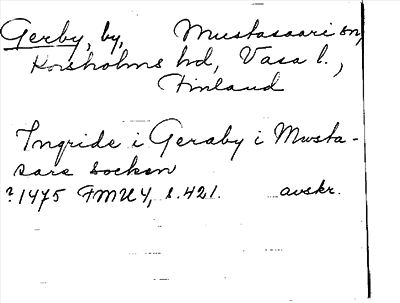 Gerby, by, Mustasaari sn,
Korsholms hd, Vasa l.,
Finland
Ingride i Geraby i Musta-
sare socken
? 1475 FMU 4, s. 421. avskr.